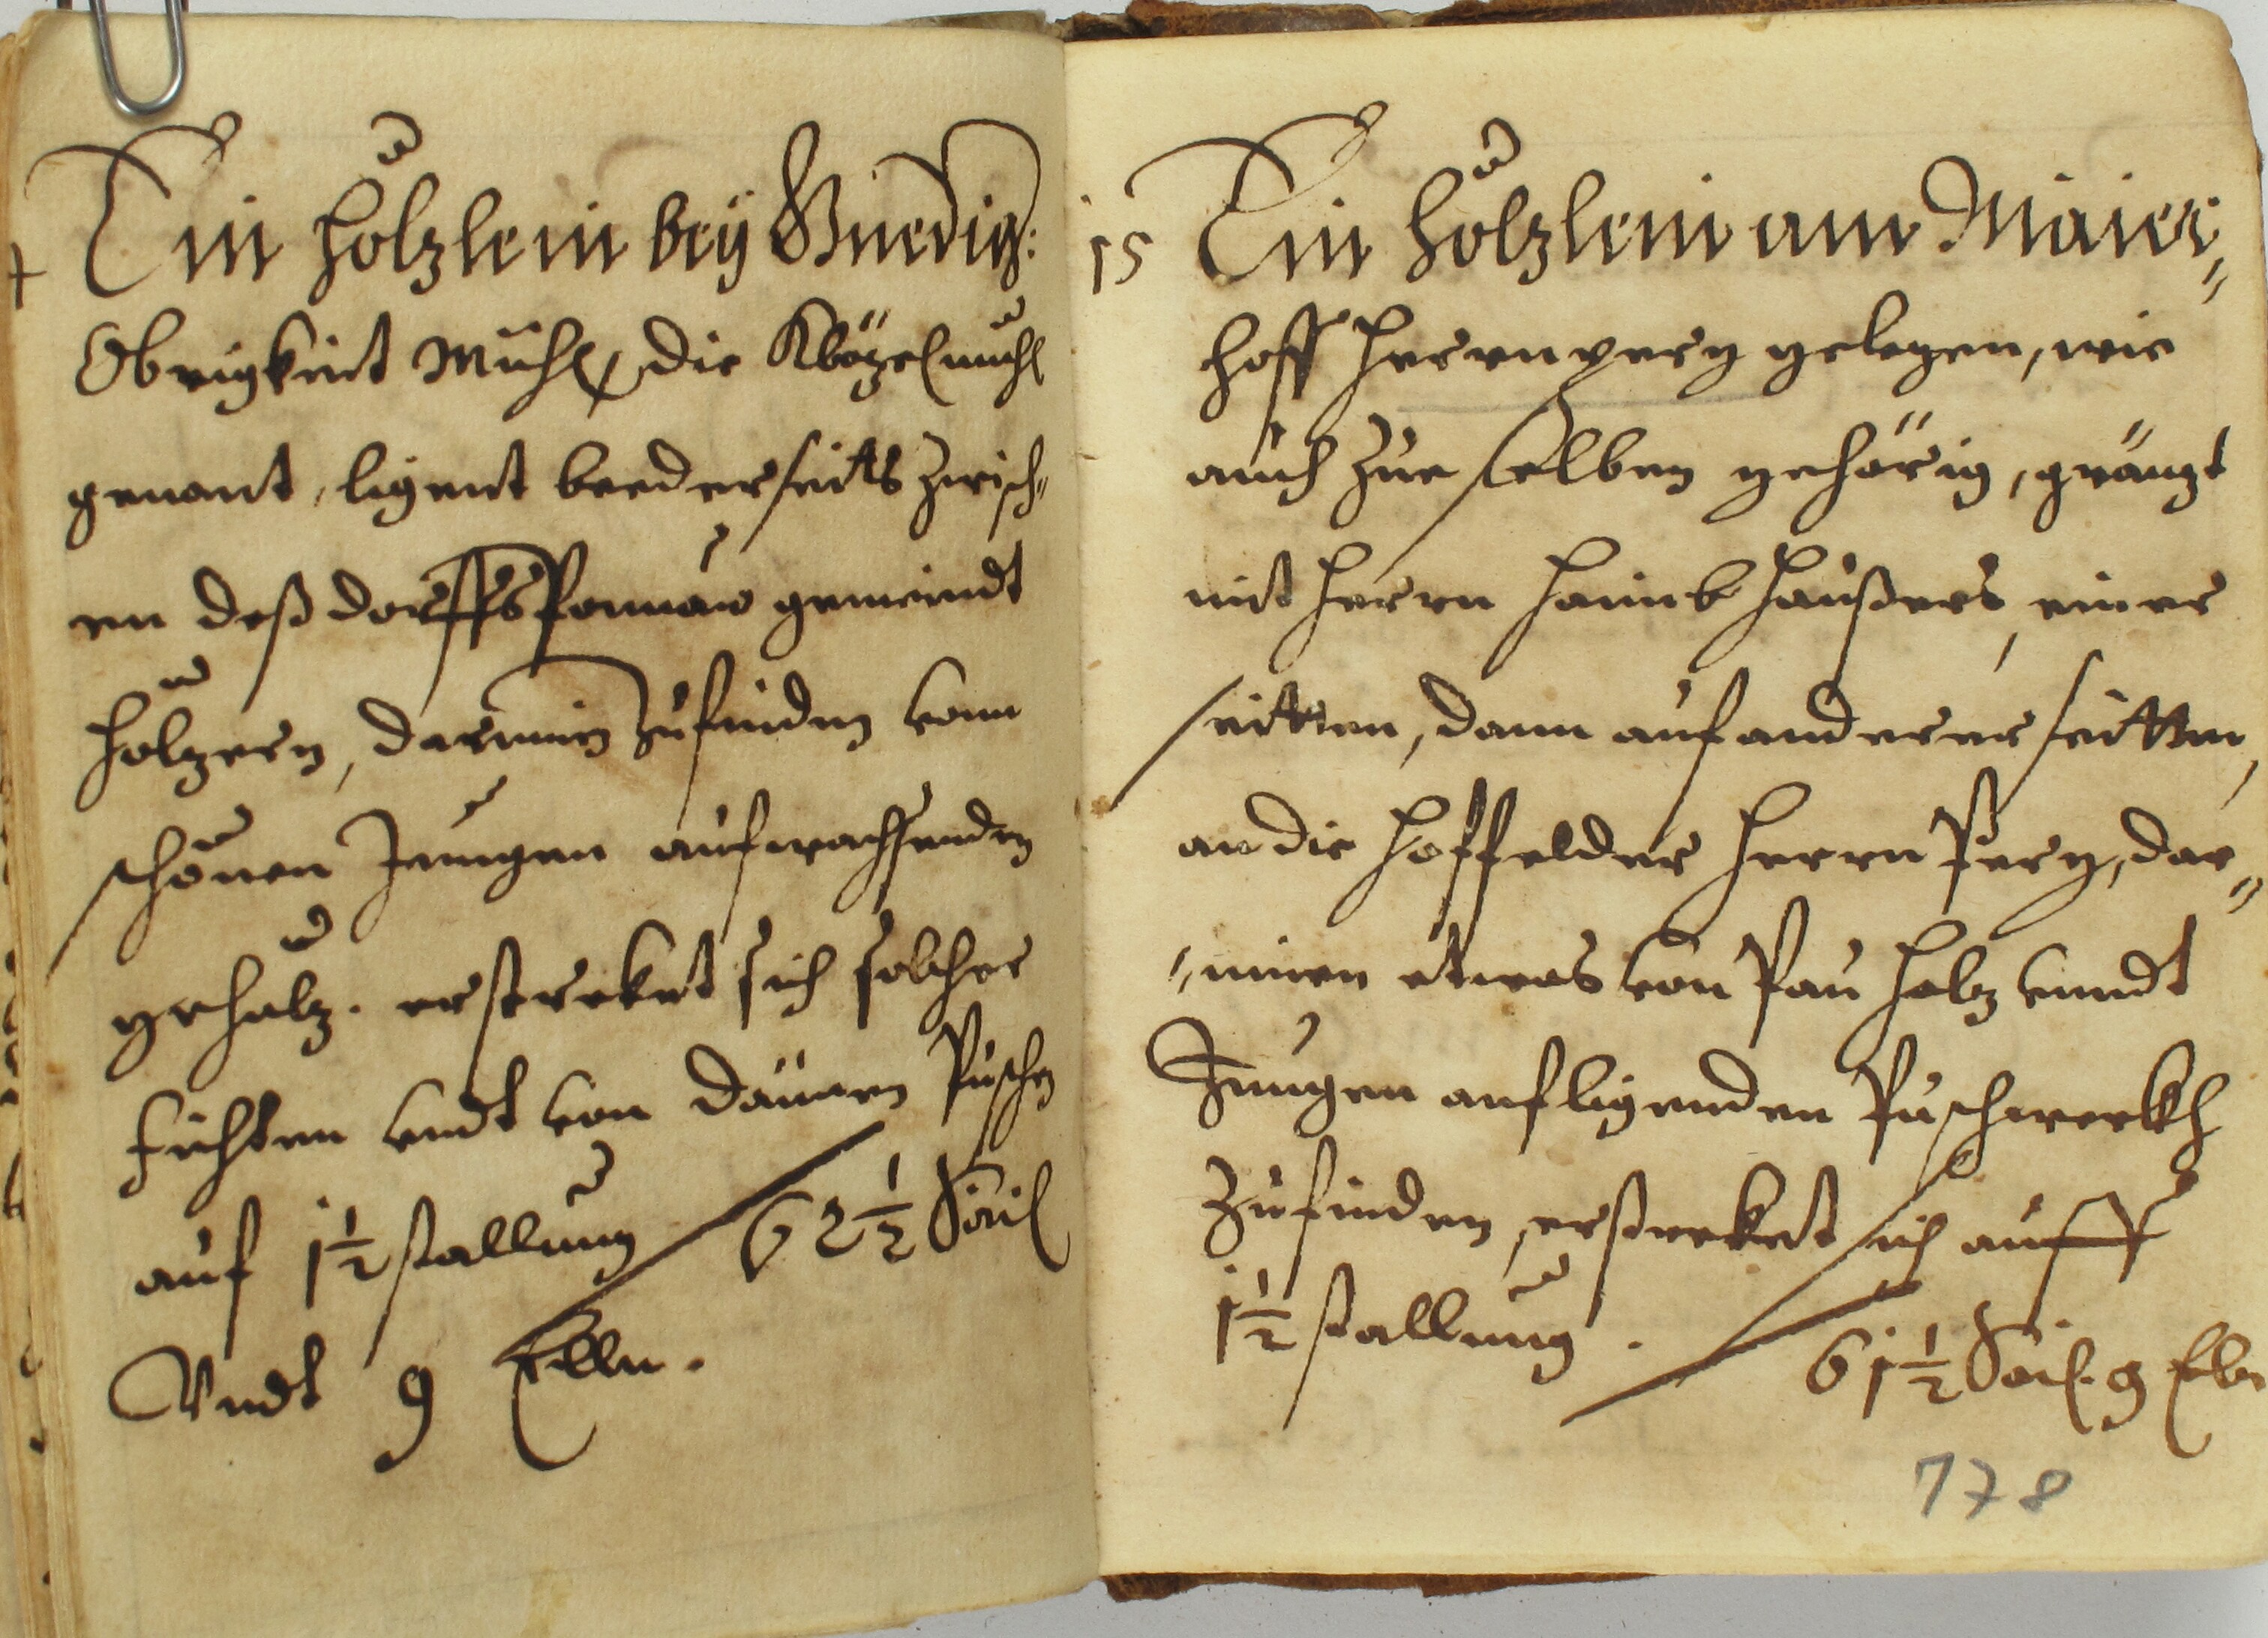 Ein hölzlein beÿ Gnedig:
Obrigkeit Mühl, die Klözelmühl
genant, ligent beederseits zwisch-
en deß dorffs Ponnau gemeindt
hölzern, darinnen zufinden vonn
schönen Jungen aufwachsenden
geholz. erstreket sich solcher
fichten undt von dännen Püschen
auf 1½ stallung 62½ Sail
Undt 9 Elln.
15 Ein hölzlein am Maier-
hoff Herrnperg gelegen, wie
auch zue selben gehörig, gränzt
mit Herrn Hainb Haußers, einer
seitten, dann auf anderer seitten,
an die Hoffelder Herrn Perg, dar-
-innen etwas von Pau Holz unndt
Jungen anfligenden Puschwerkh
zufinden, erstreket sich auff
1½ stallung. 61½ Sail. 9 Eln
778